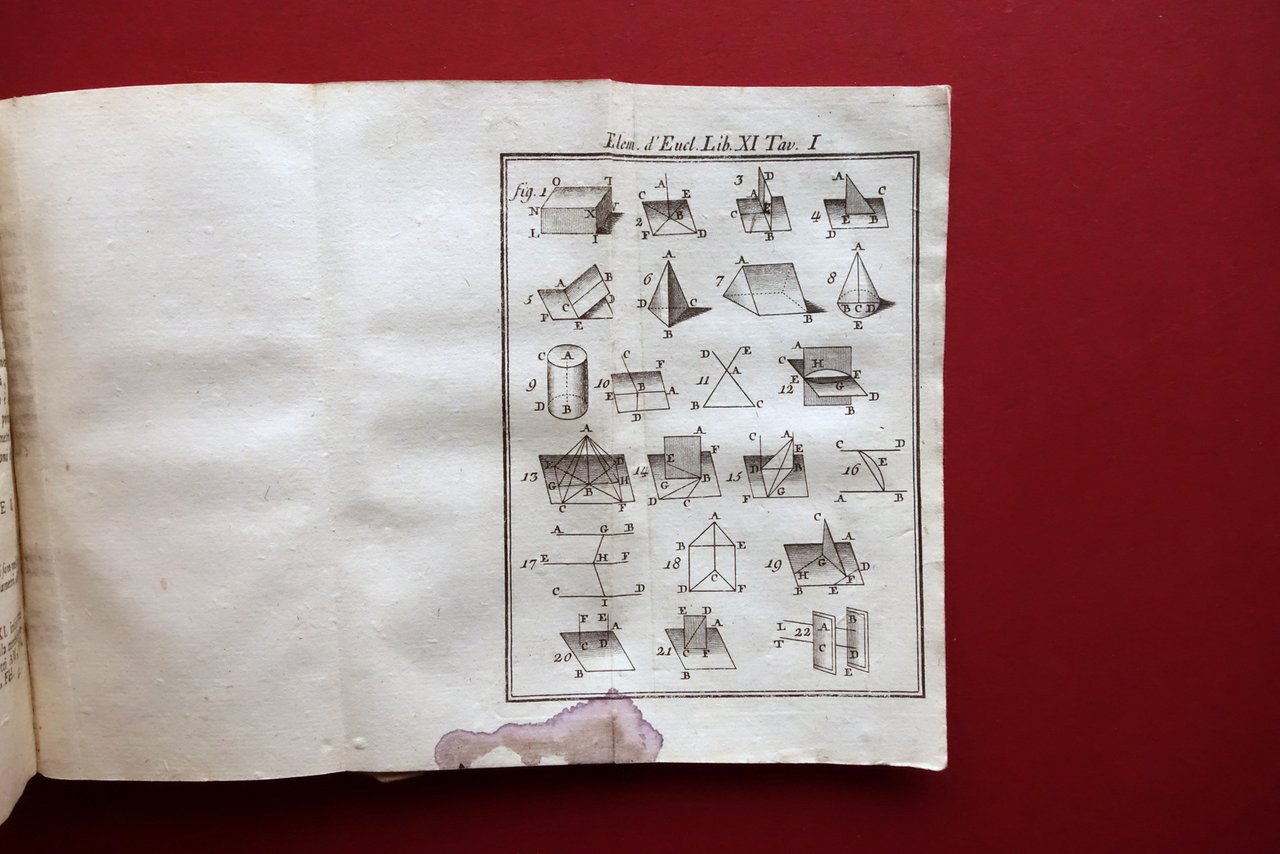 Elem. d'Eucl. Lib. XI Tav. I
fig. 1 O T N X L I
2 A C E B F D
3 D A C E B
4 A C E B D
5 A B C D F E
6 A D C B
7 A B
8 A B C D E
9 C A D B
10 C F B A E D
11 D E A B C
12 A C H E E G D B
13 A E D G B H C F
14 A F E G B D C
15 C A E D B F G
16 C D E A B
17 A G B E H F C I D
18 A B E C D F
19 C A G H F D B E
20 F E A C D B
21 E D A C F B
22 L T A B C D E
E I